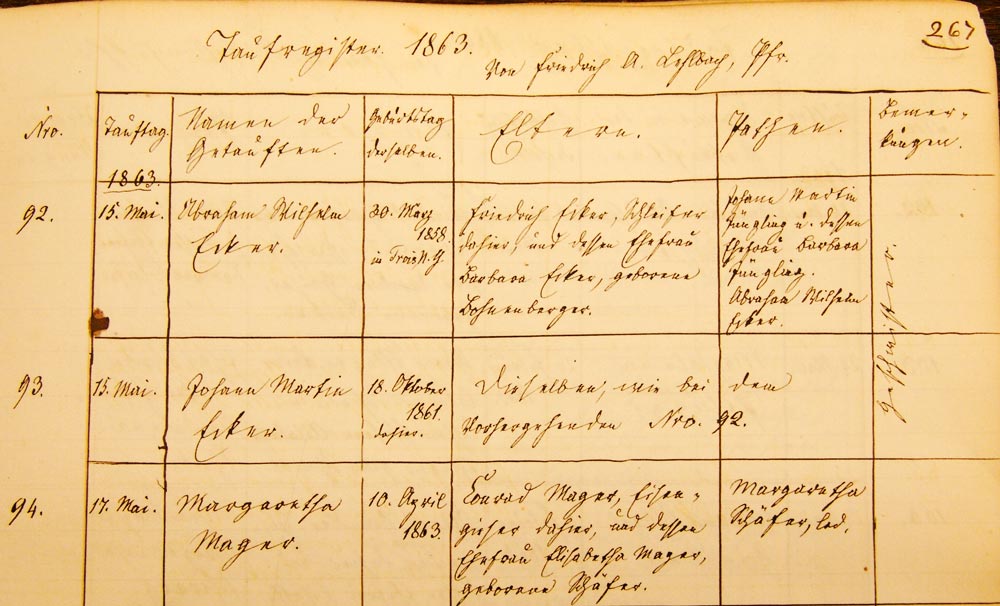 267
Taufregister. 1863.
Von Friedrich A. Lehlbach, Pfr.
Nro.
Tauftag.
1863.
Namen der
Getauften.
Geburtstag
derselben.
Eltern.
Pathen.
Bemer-
kungen.
92.
15. Mai.
Abraham Wilhelm
Ecker.
30. März
1858.
in N.Y.
Friedrich Ecker, Schleifer
dahier, und dessen Ehefrau
Barbara Ecker, geborene
Bohnenberger.
Johann Martin
Jüngling u. dessen
Ehefrau Barbara
Jüngling.
Abraham Wilhelm
Ecker.
Geschwister.
93.
15. Mai.
Johann Martin
Ecker.
18. Oktober
1861.
dahier.
Dieselben, wie bei dem
Vorhergehenden Nro. 92.
94.
17. Mai.
Margaretha
Mager.
10. April
1863.
Conrad Mager, Eisen-
gießer dahier, und dessen
Ehefrau Elisabetha Mager,
geborene Schäfer.
Margaretha
Schäfer, led.